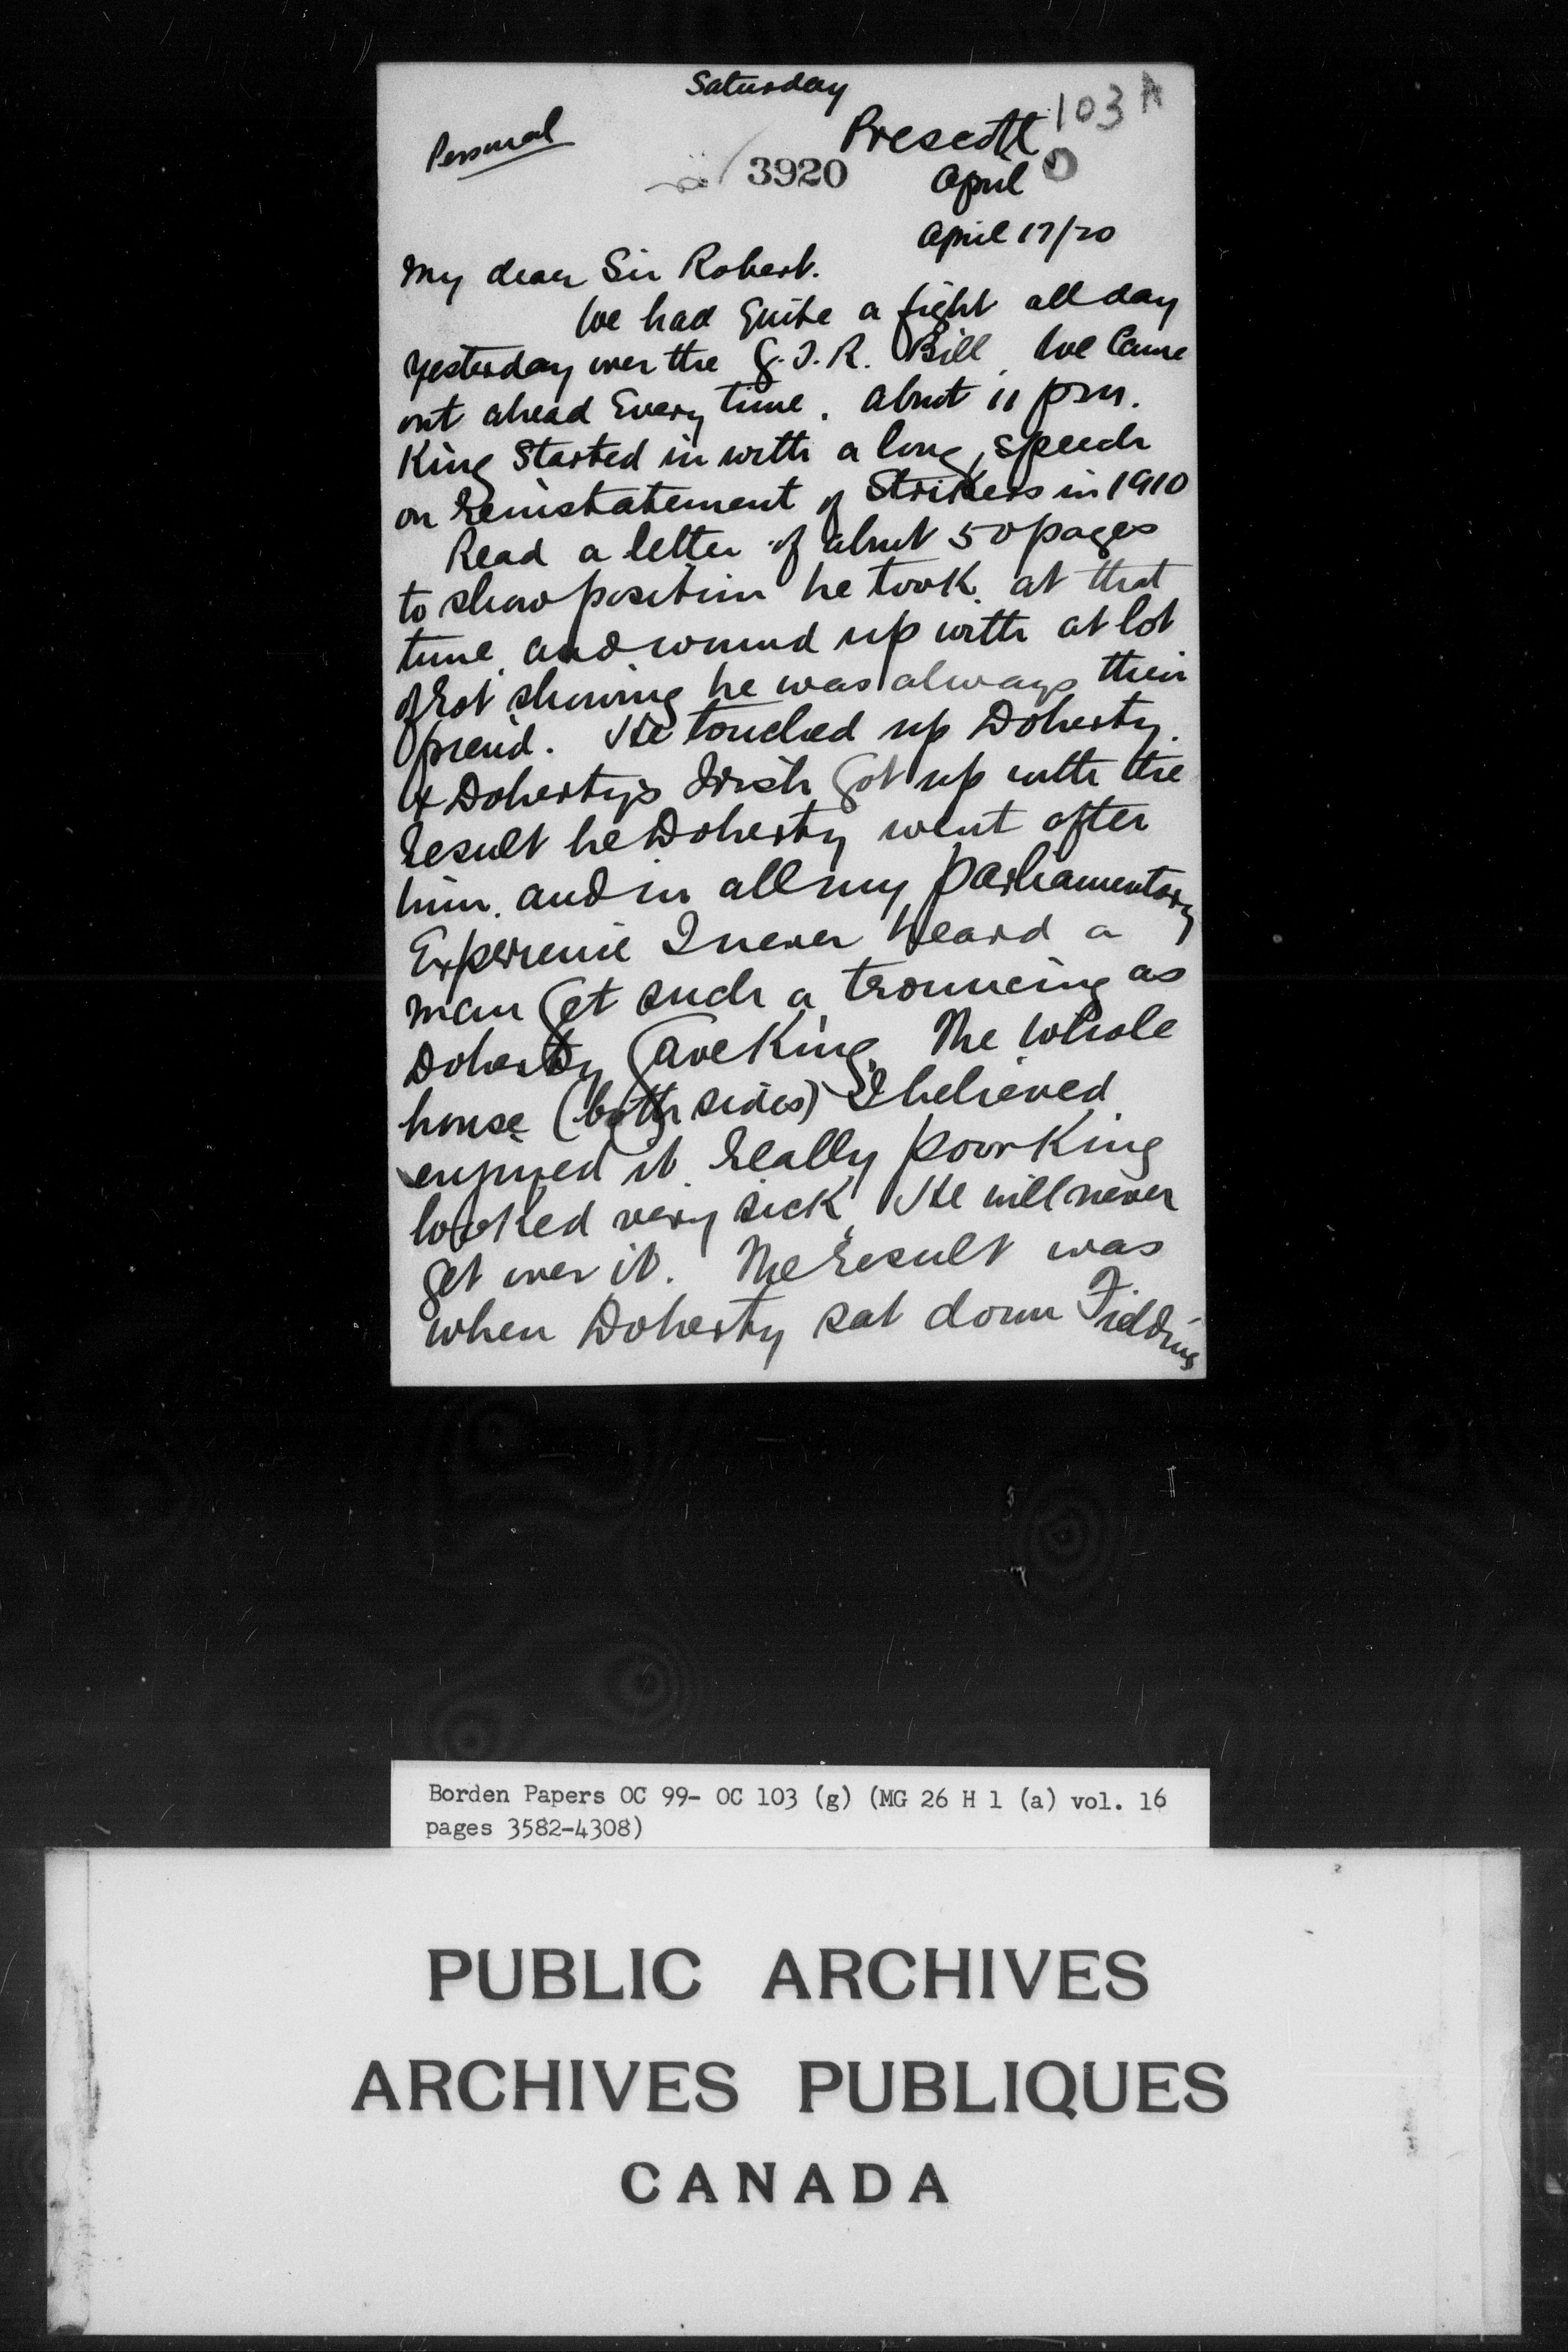 Saturday
103 A
Personal
Prescott
3920
April
April 17/20
My dear Sir Robert.
We had quite a fight all day
yesterday over the G.T.R. Bill. We came
out ahead every time. About 11 pm.
King started in with a long speech
on reinstatement of Strikers in 1910
Read a letter of about 50 pages
to show position he took at that
time and wound up with at lot
of rot showing he was always their
friend. He touched up Doherty.
& Doherty's Irish got up with the
result he Doherty went after
him. and in all my parliamentary
Experience I never heard a
man get such a trouncing as
Doherty gave King. The whole
house (both sides) I believed
enjoyed it. Really poor King
looked very sick. He will never
get over it. The result was
when Doherty sat down Fielding
Borden Papers OC 99- OC 103 (g) (MG 26 H 1 (a) vol. 16
pages 3582-4308)
PUBLIC ARCHIVES
ARCHIVES PUBLIQUES
CANADA